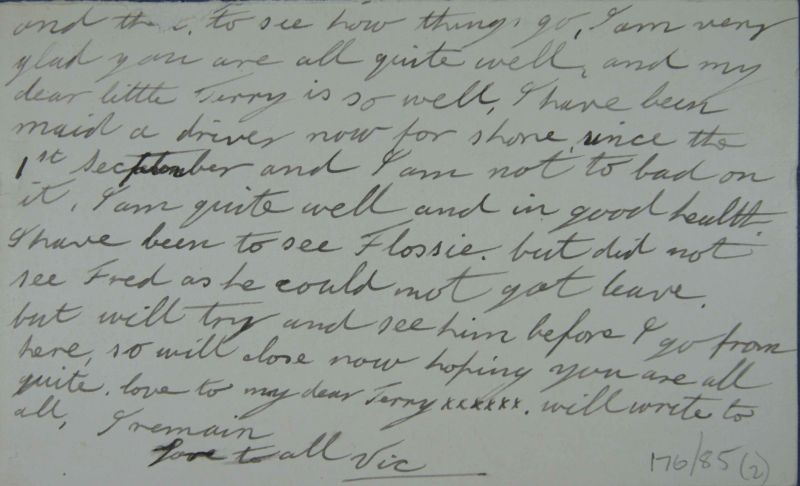 and then, to see how things go, I am very
glad you are all quite well, and my
dear little Terry is so well, I have been
maid a driver now for shore, since the
1st September and I am not to bad on
it, I am quite well and in good health
I have been to see Flossie. but did not
see Fred as he could not got leave.
but will try and see him before I go from
here, so will close now hoping you are all
quite. love to my dear Terry xxxxxx. will write to
all, I remain
love to all Vic
176/85 (2)